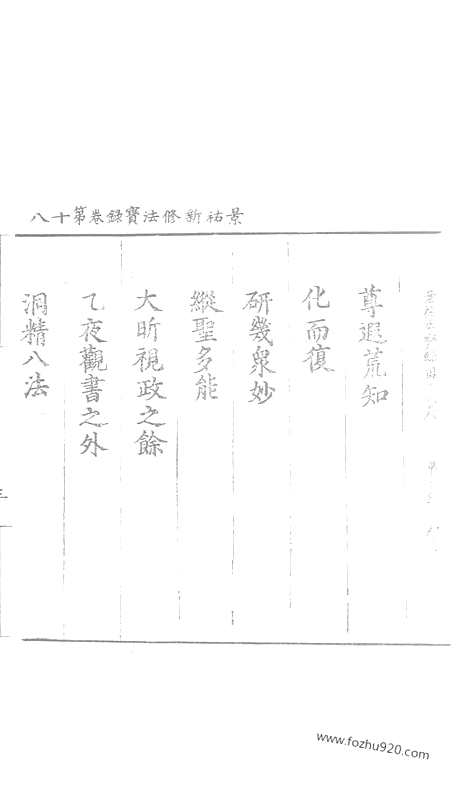 景祐新修法寶錄卷第十八
尊遐荒知
化而復
研幾衆妙
縱聖多能
大昕視政之餘
乙夜觀書之外
洞精八法
三
www.fozhu920.com